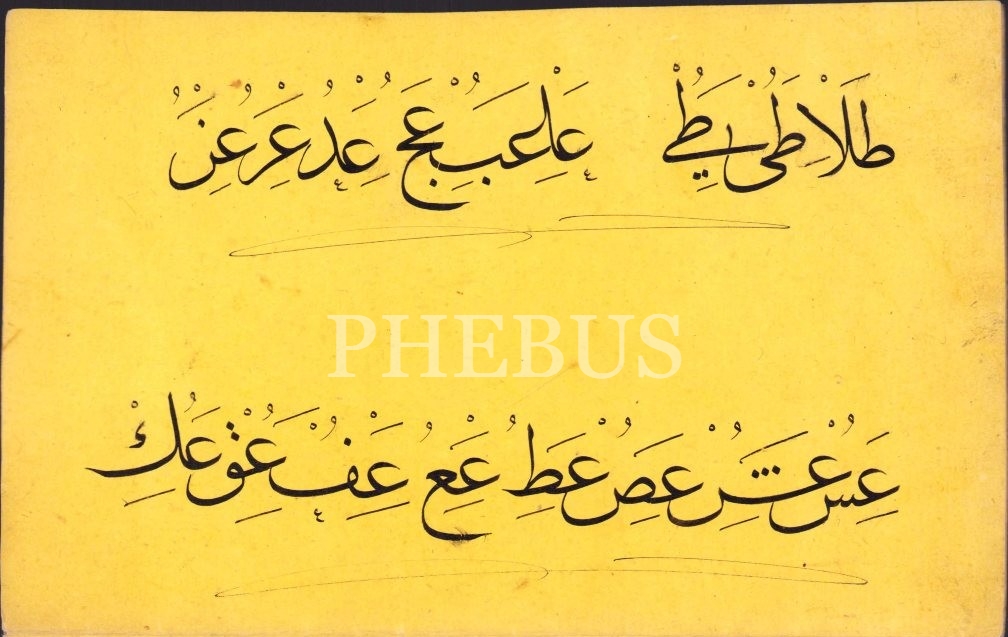 طلا طى طي عا عب عج عد عر
PHEBUS
عس عش عص عط عع عف عق عك